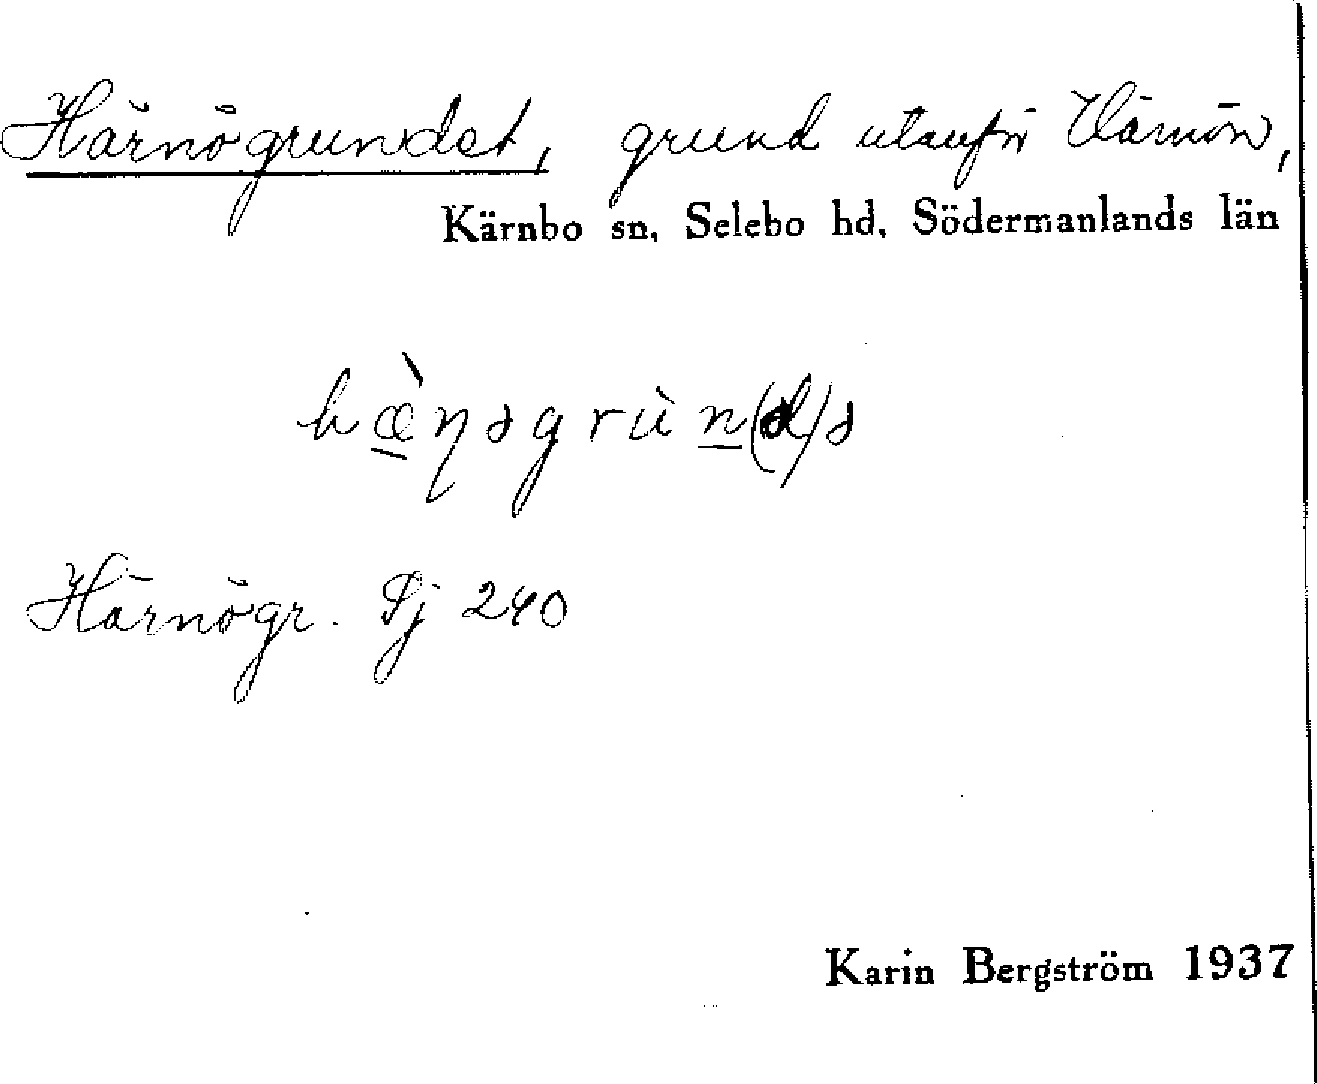 Härnögrundet, grund utanför Härnön,
Kärnbo sn, Selebo hd, Södermanlands län
hæ̀ŋəgrùn(d)ə
Härnögr. Sj 240
Karin Bergström 1937